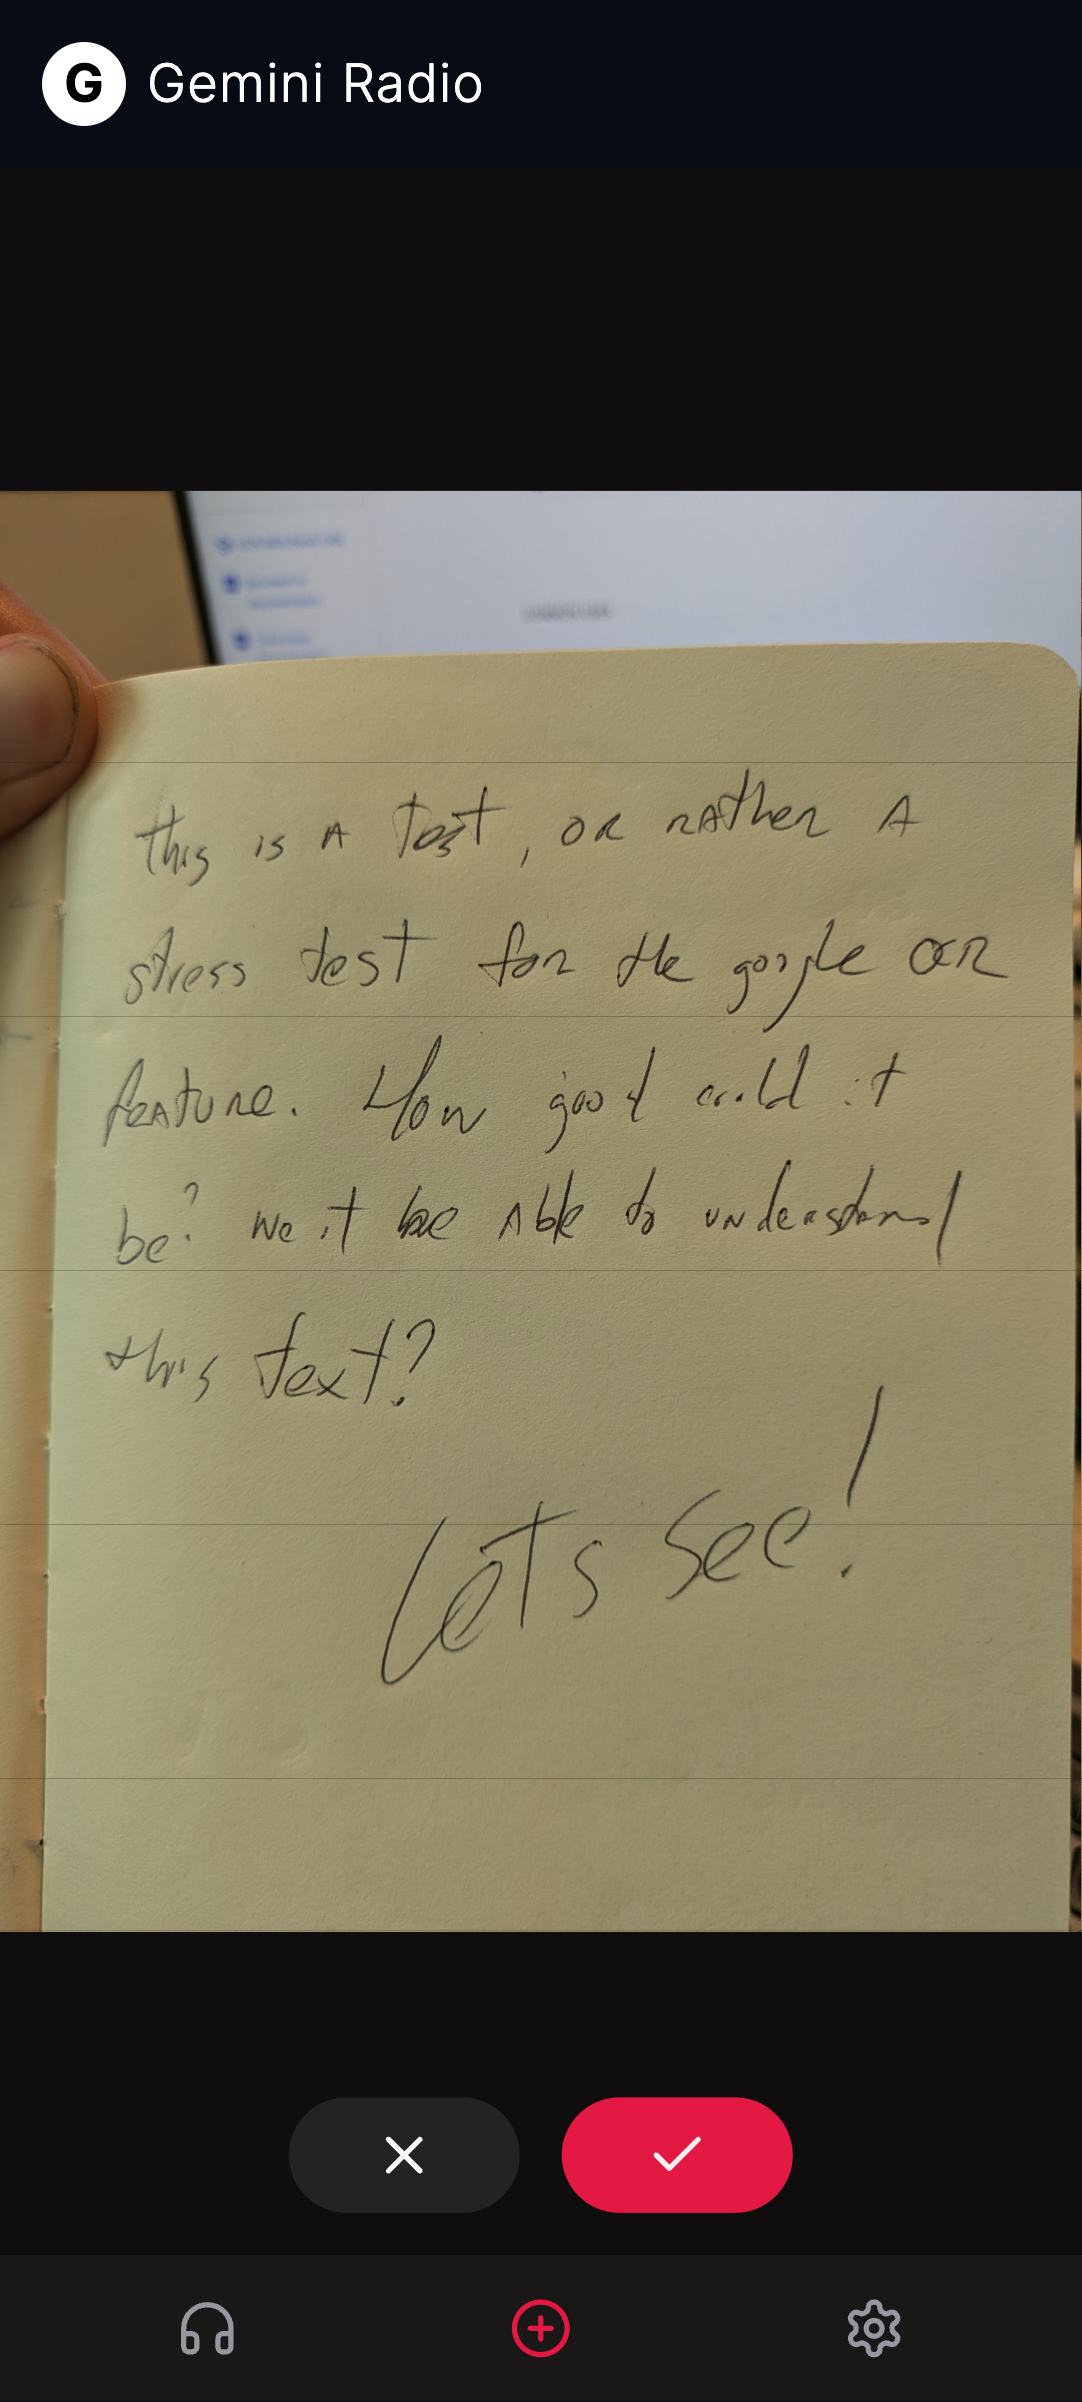 G Gemini Radio
this is A test, or rather A
stress test for the google OCR
feature. How good could it
be? we it be Able to understand
this text?
Lets see!